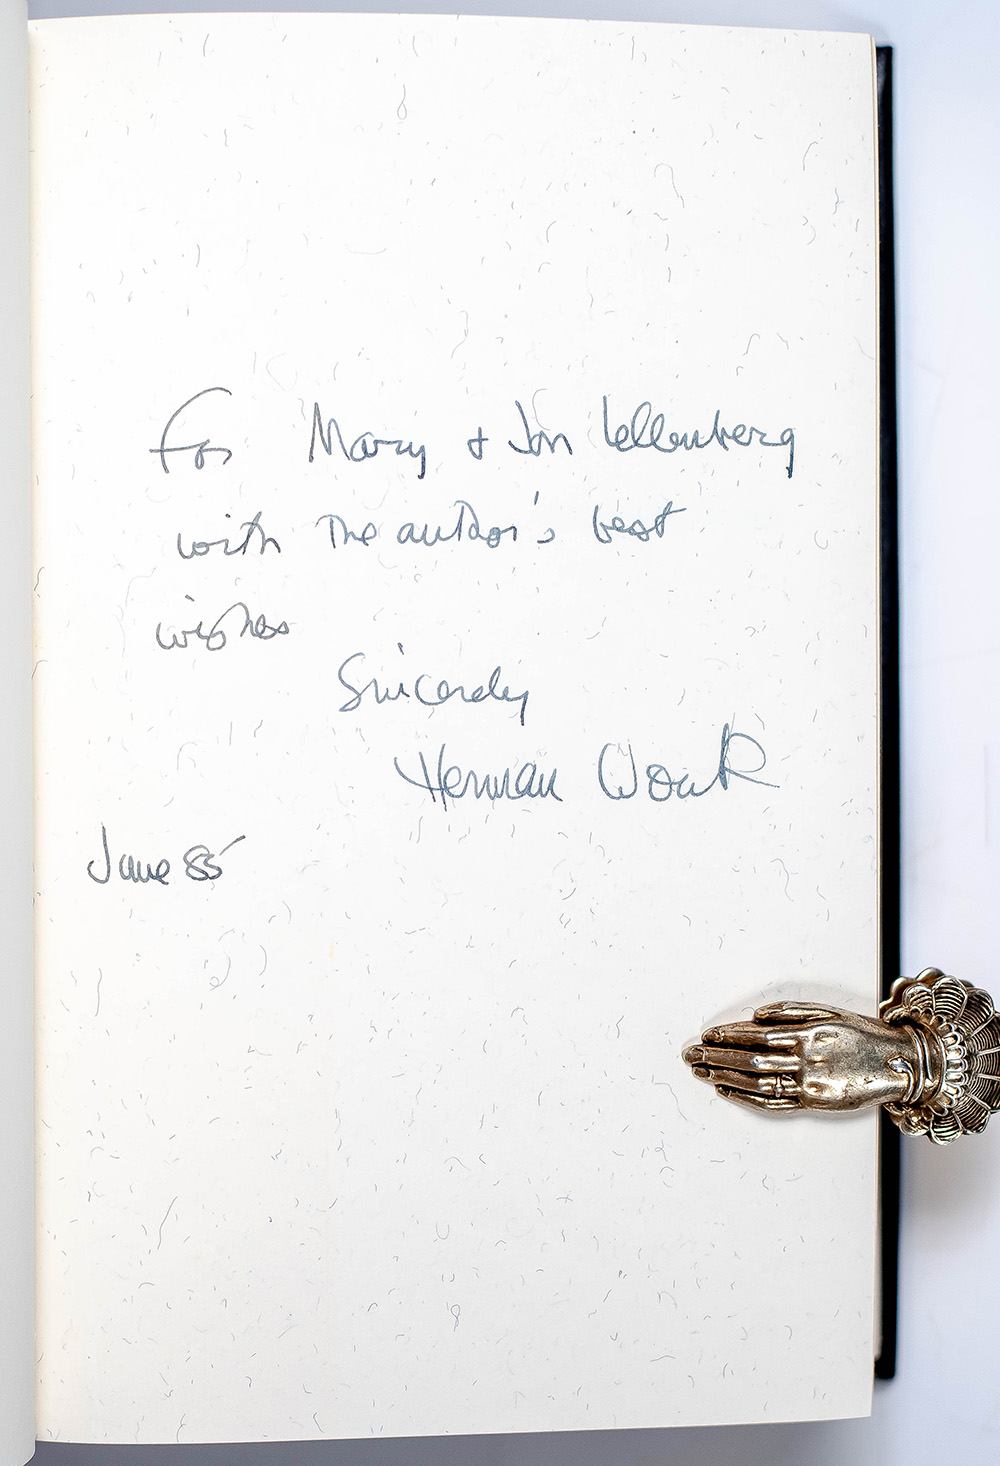 For Mary + Jon Lellenberg
with the author's best
wishes
Sincerely
Herman Wouk
June 85